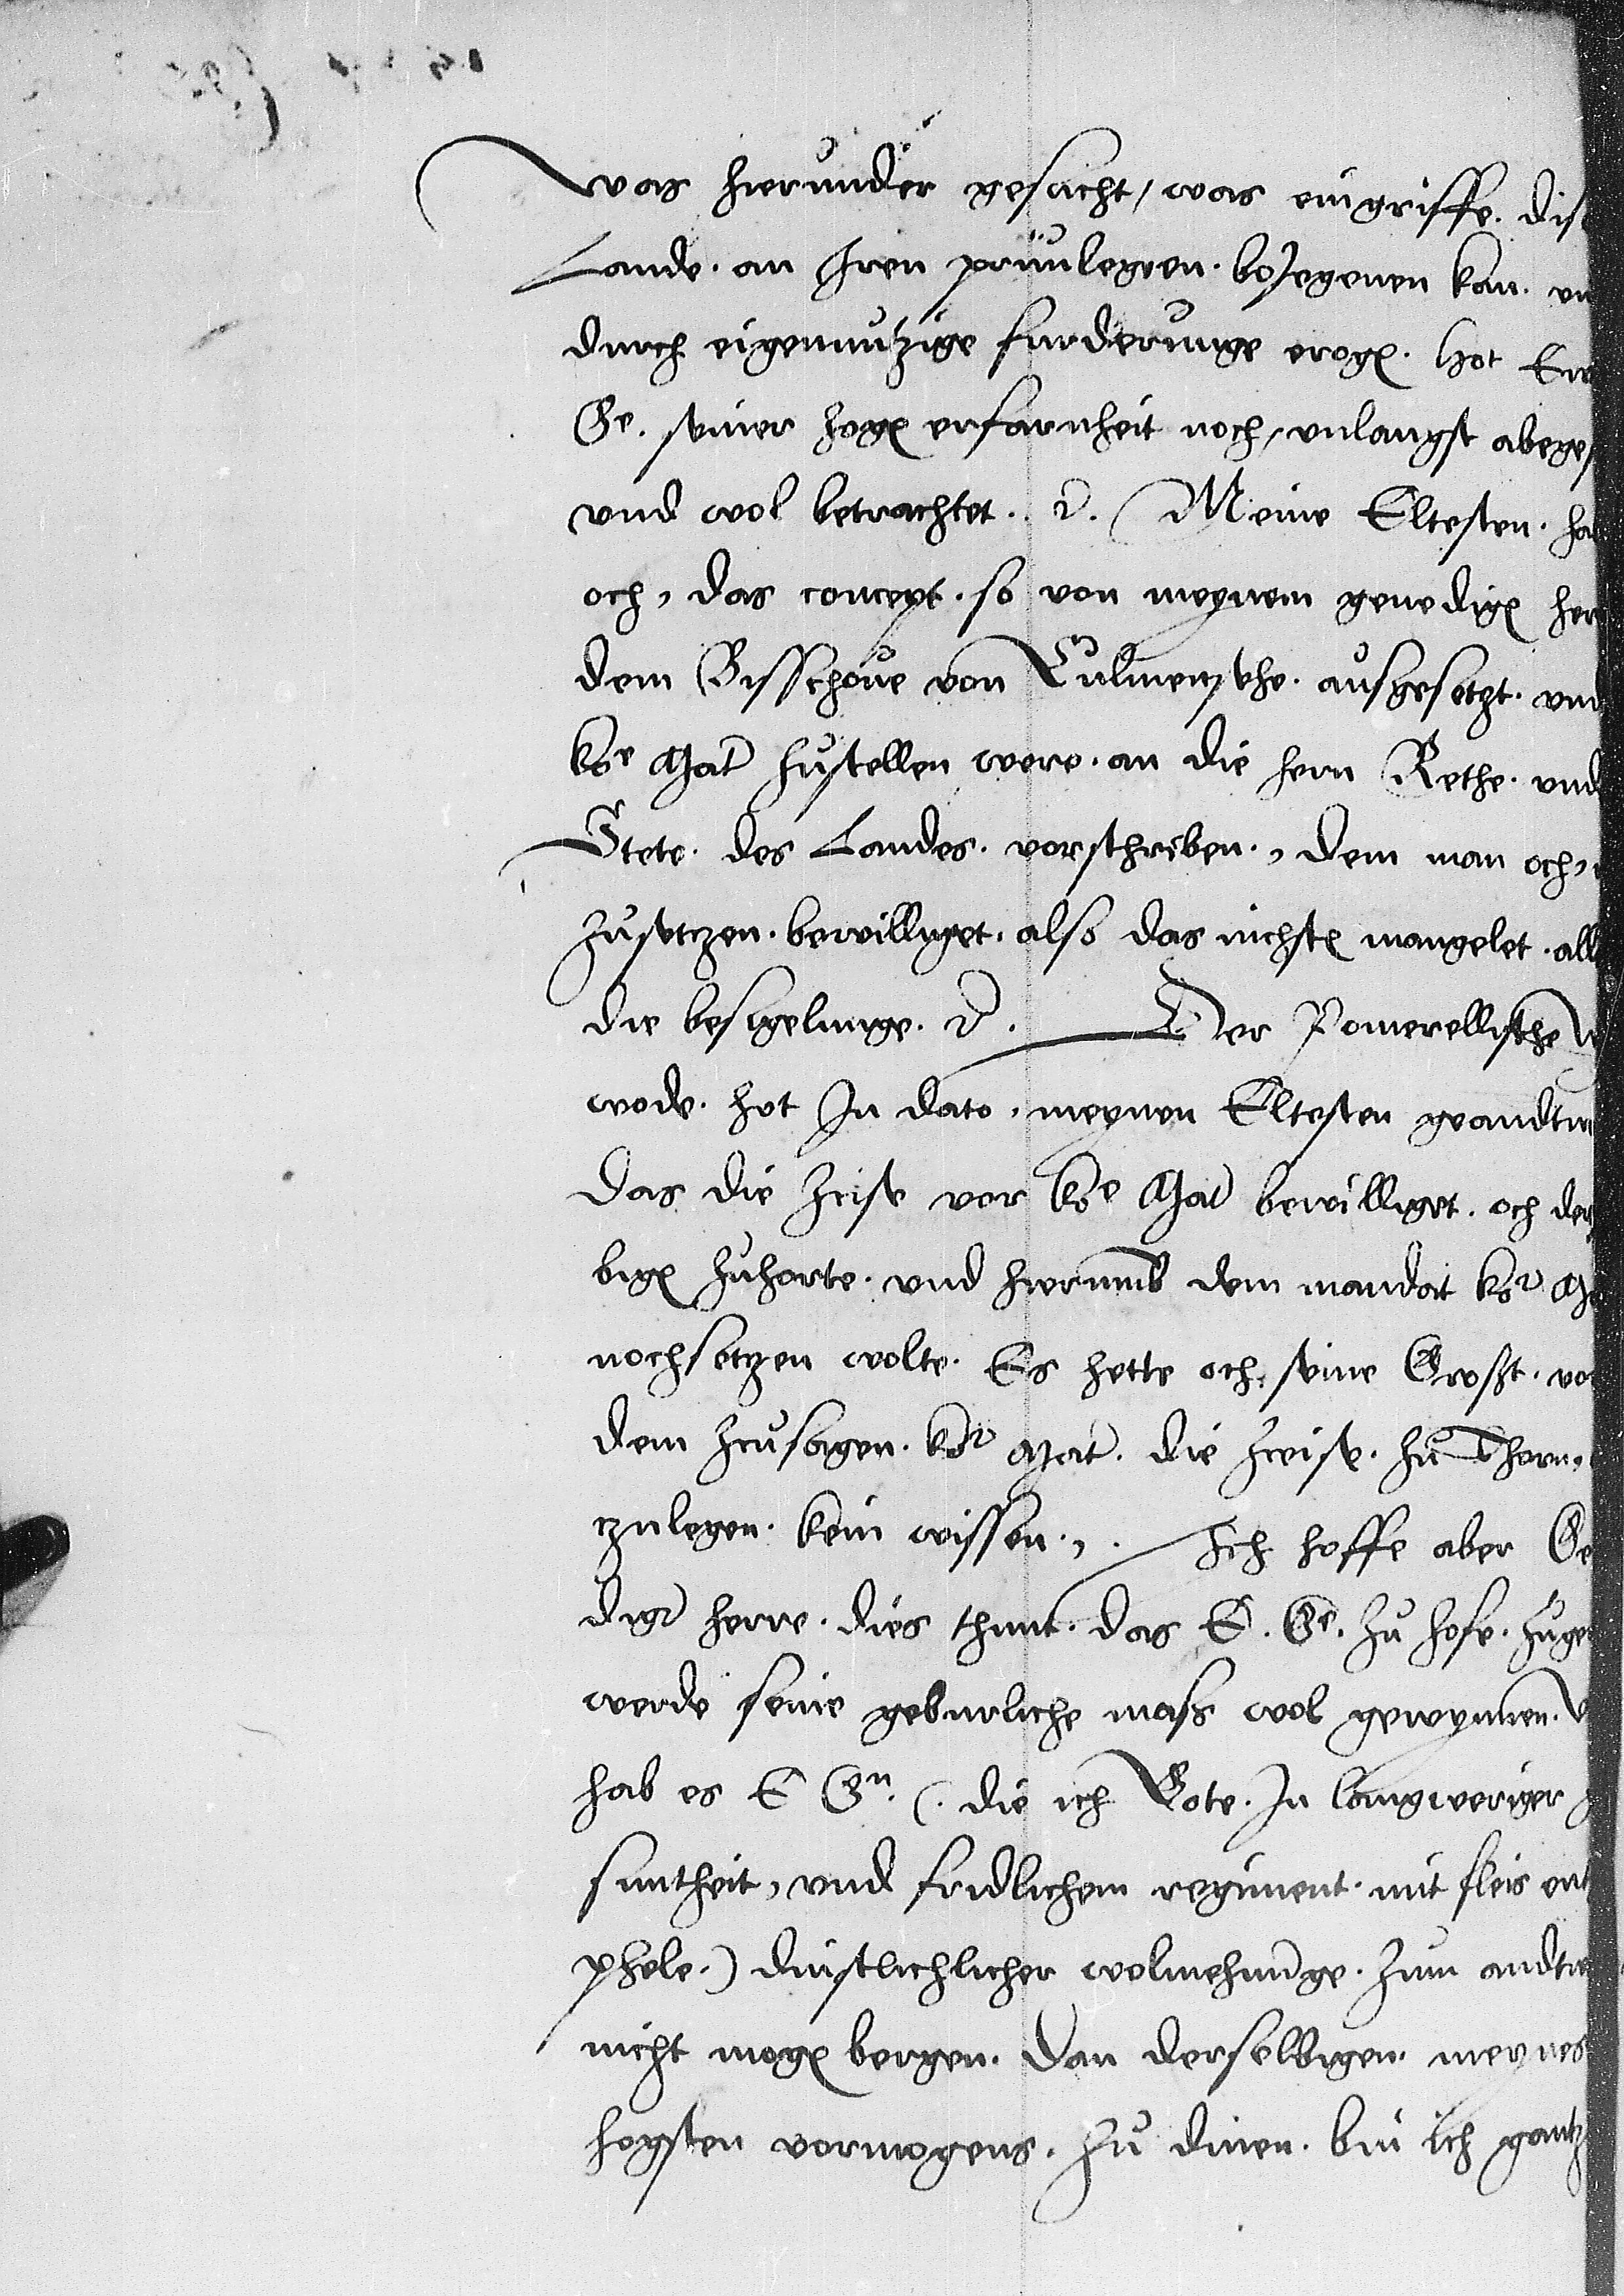 Was hierunder gesucht, was eingriffe. dise
Lande. an Iren priuilegien. bejegenen kan. vn
durch eigennutzige furderunge
Ge. seiner erfarnheit noch, vnlangst abege
vnd wol betrachtet. Meine Eltesten. ha
och, das concept. so von meynem genedig her
dem Bisschoue von Culmenszehe. ausgesetzt. vnd
ko Mat zustellen were. an die hern Rethe. vnd
Stete. des Landes. vorschriben., dem man och,
zusetczen. bewilliget. also das nichst mangelet. all
die besigelunge. Der Pomerellische
wode. hot In dato. meynen Eltesten geandtw
das die Zeise vor ko Mat bewilliget. och der
big zuhorte. und hierumb dem mandat kor Ma
nochsetzen wolte. Es hette och, seine Groszt. vo
dem Zcusagen. kor Mat. die Zceise. zu Thorn,
czulegen. kein wissen., Ich hoffe aber Ge
diger herre. dies thun. das E. Ge. zu hofe. zuge
werde seine geburliche mass wol gewynnen.
hab es E Gn. (. die ich Gote. In langweriger
suntheit, vnd fridlichem regiment. mit fleis ent
phele.) dinstlichlicher wolmehnunge. zum andtw
nicht mog bergen. Dan derselbigen. meynes
hogsten vormogens. zu dinen. bin ich gantz